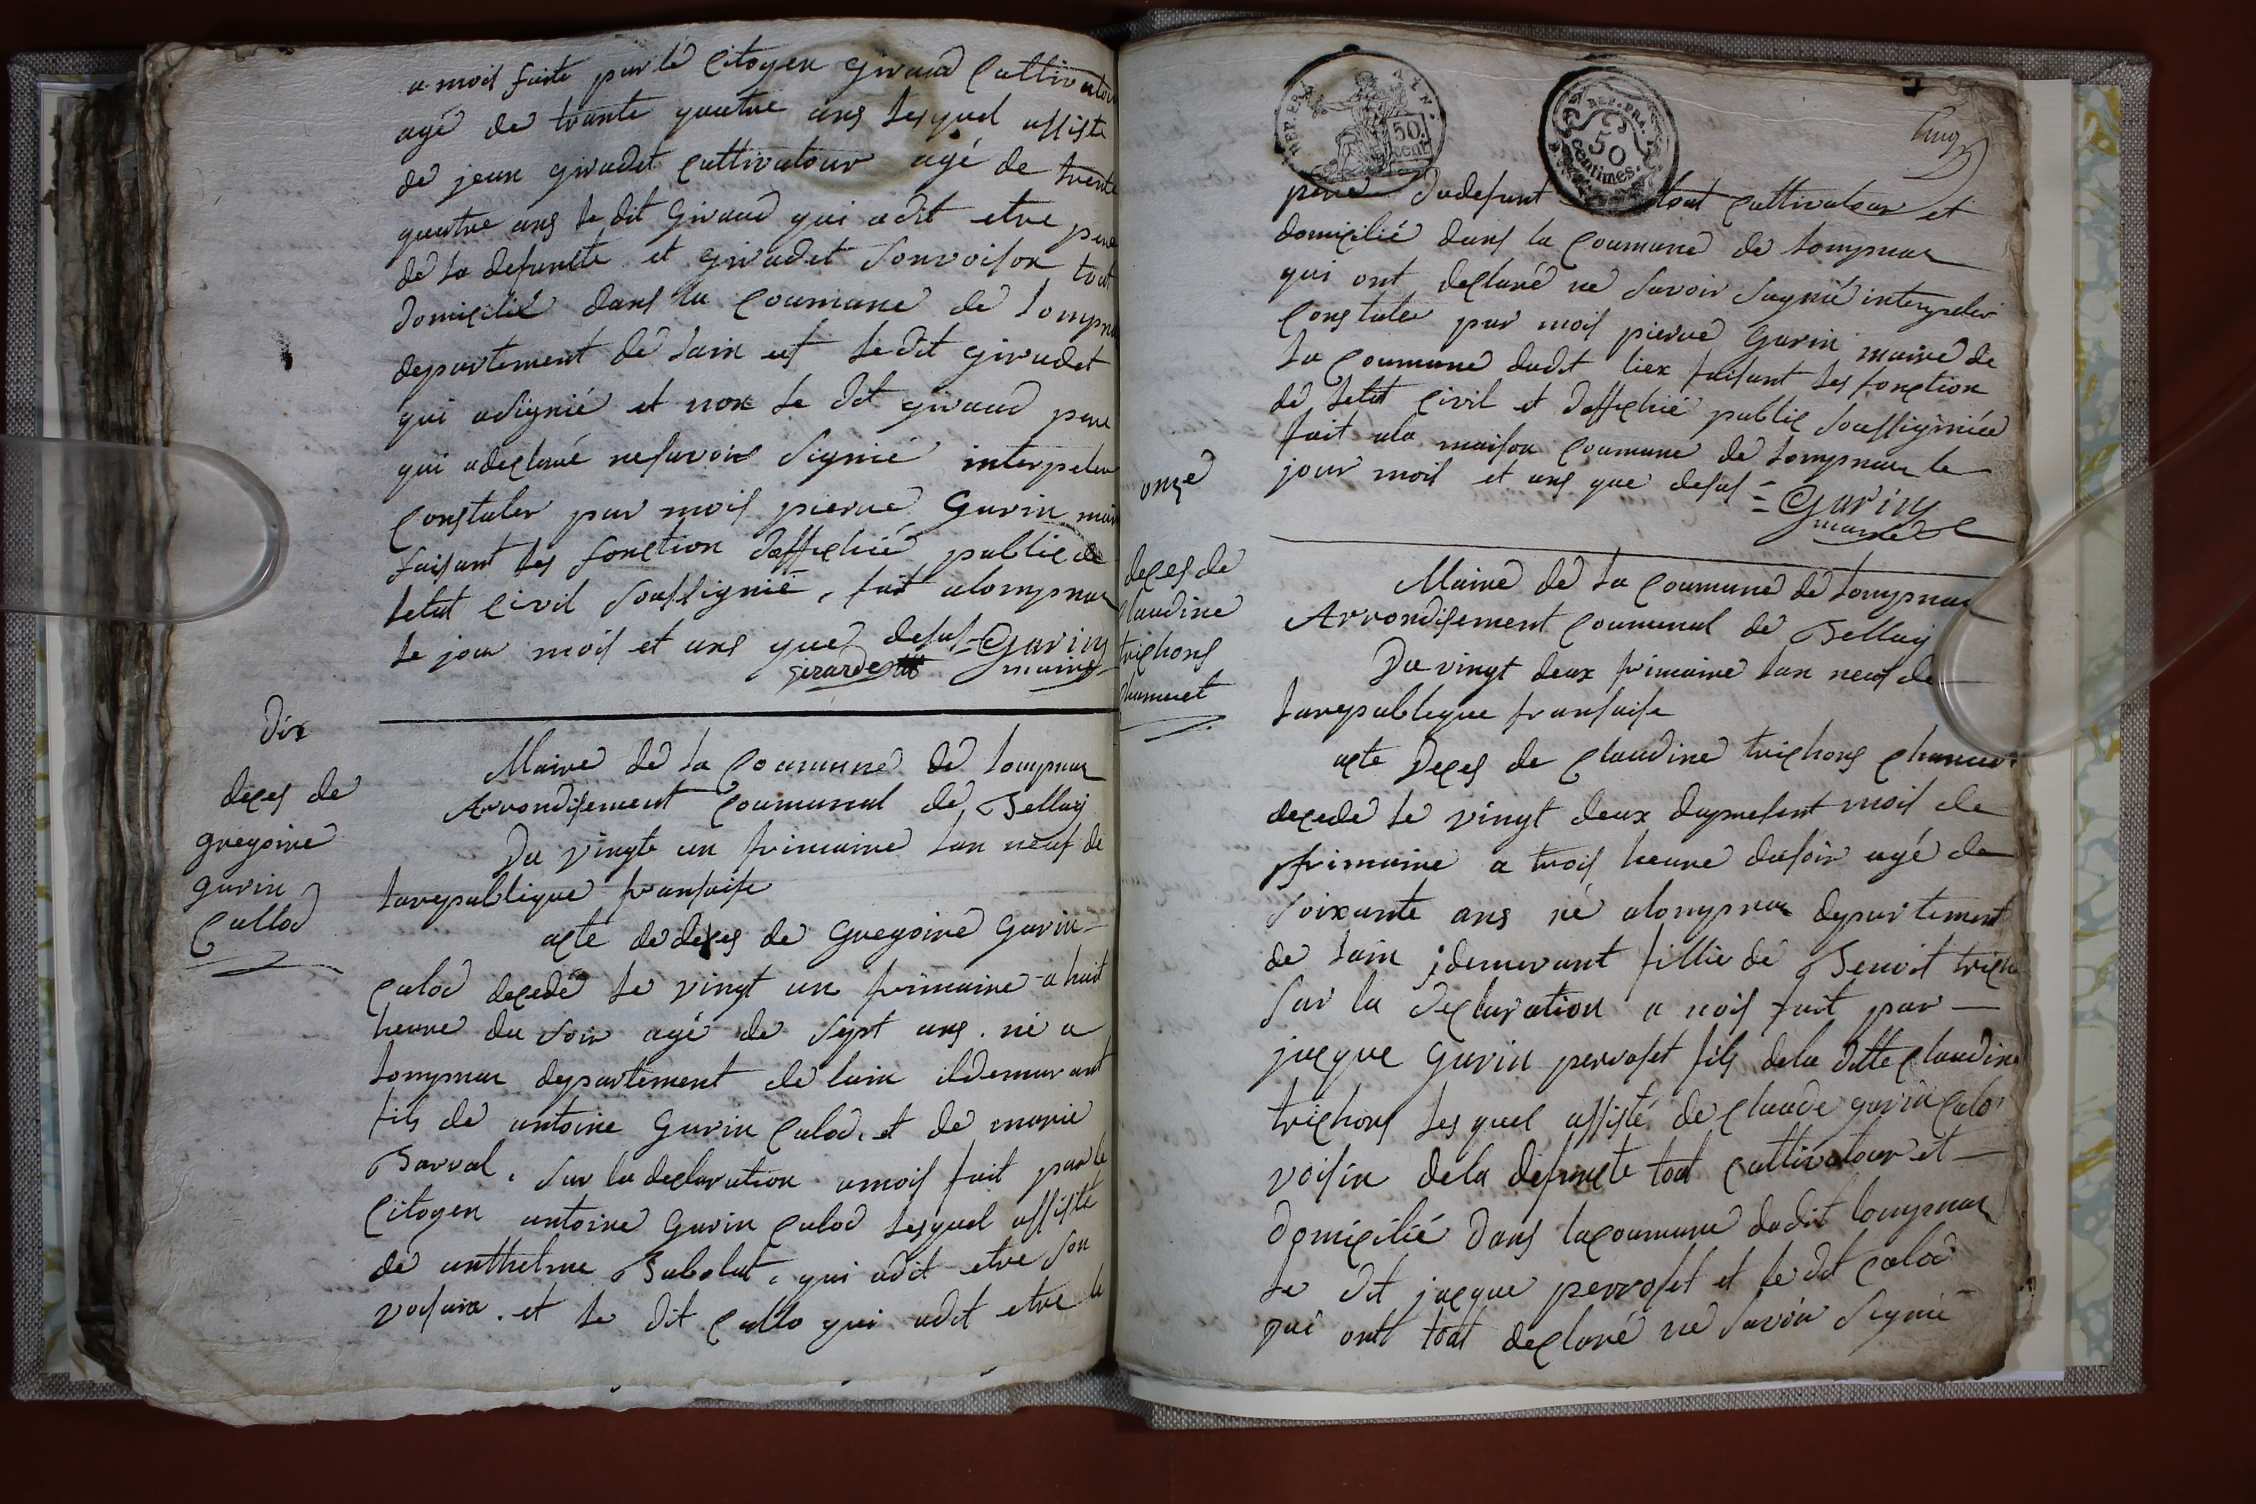 a mois faite par le Citoyen Giraud Cultivatour
agé de trante quatre ans lesquel assiste
de jean giradet Cultivatour agé de trente
quatre ans le dit Giraud qui adit etre pere
de la defuncte et giradet Sonvoison tout
domicilié dans la Coumune de Lompna
departement de Lain est le dit giradet
qui asignié et non le dit giraud pere
qui adeclaré nesavoir Signié interpeler
Constater par mois pierre Garin mair
faisant les fonction daffichié public de
letat Civil Soussignié, fait alompnas
le jour mois et ans que desus = Garin
girardet maire
Dix
deces de
gregoire
garin
Callod
Maire de la Coumune de Lompnas
Arrondisement Coumunal de Bellay
Du vingte un frimaire lan neuf de
larepublique fransaise
acte de deces de Gregoire Garin
Calod decedé le vingt un frimaire a huit
heure du soir agé de Sept ans. né a
Lompnas departement de lain ildemurant
fils de antoine Garin Calod. et de marie
Barral. Sur la declaration amois fait par le
Citoyen antoine Garin Calod lesquel assisté
de anthelme Babolat, qui adit etre Son
voisin. et le dit Callo qui adit etre le
REP. FRA.
50.
cent.
REP. FRA.
50
centimes.
pere dudefunt tout Cultivatour et
domicilié dans la Coumune de Lompnas
qui ont declaré ne Savoir Sagnié interpeler
Constater par mois pierre Garin maire de
la Coumune dudit liex faisant les fonction
de letat Civil et daffichié public Soussigniée
fait ala maison Coumune de Lompnas le
jour mois et ans que desus = Garin
maire
onze
deces de
Claudine
trichons
chamuet
Maire de la Coumune de Lompnas
Arrondisement Coumunal de Bellay
Du vingt deux frimaire lan neuf de
larepublique fransaise
acte Deces de Claudine trichons
decede le vingt deux dupresent mois de
frimaire a trois heure dusoir agé de
Soixante ans né alompnas departement
de Lain jdemurant fillie de Benoit trich
Sur la declaration a nois fait par
jacque Garin perroset fils dela ditte Claudine
trichons lesquel assisté de Claude garin Calo
voisin dela defuncte tout Cultivatour et
domicilié Dans lacoumune dudit Lompnas
le dit jacque perroset et le dit Calod
qui ont tout declaré ne Savoir Signié